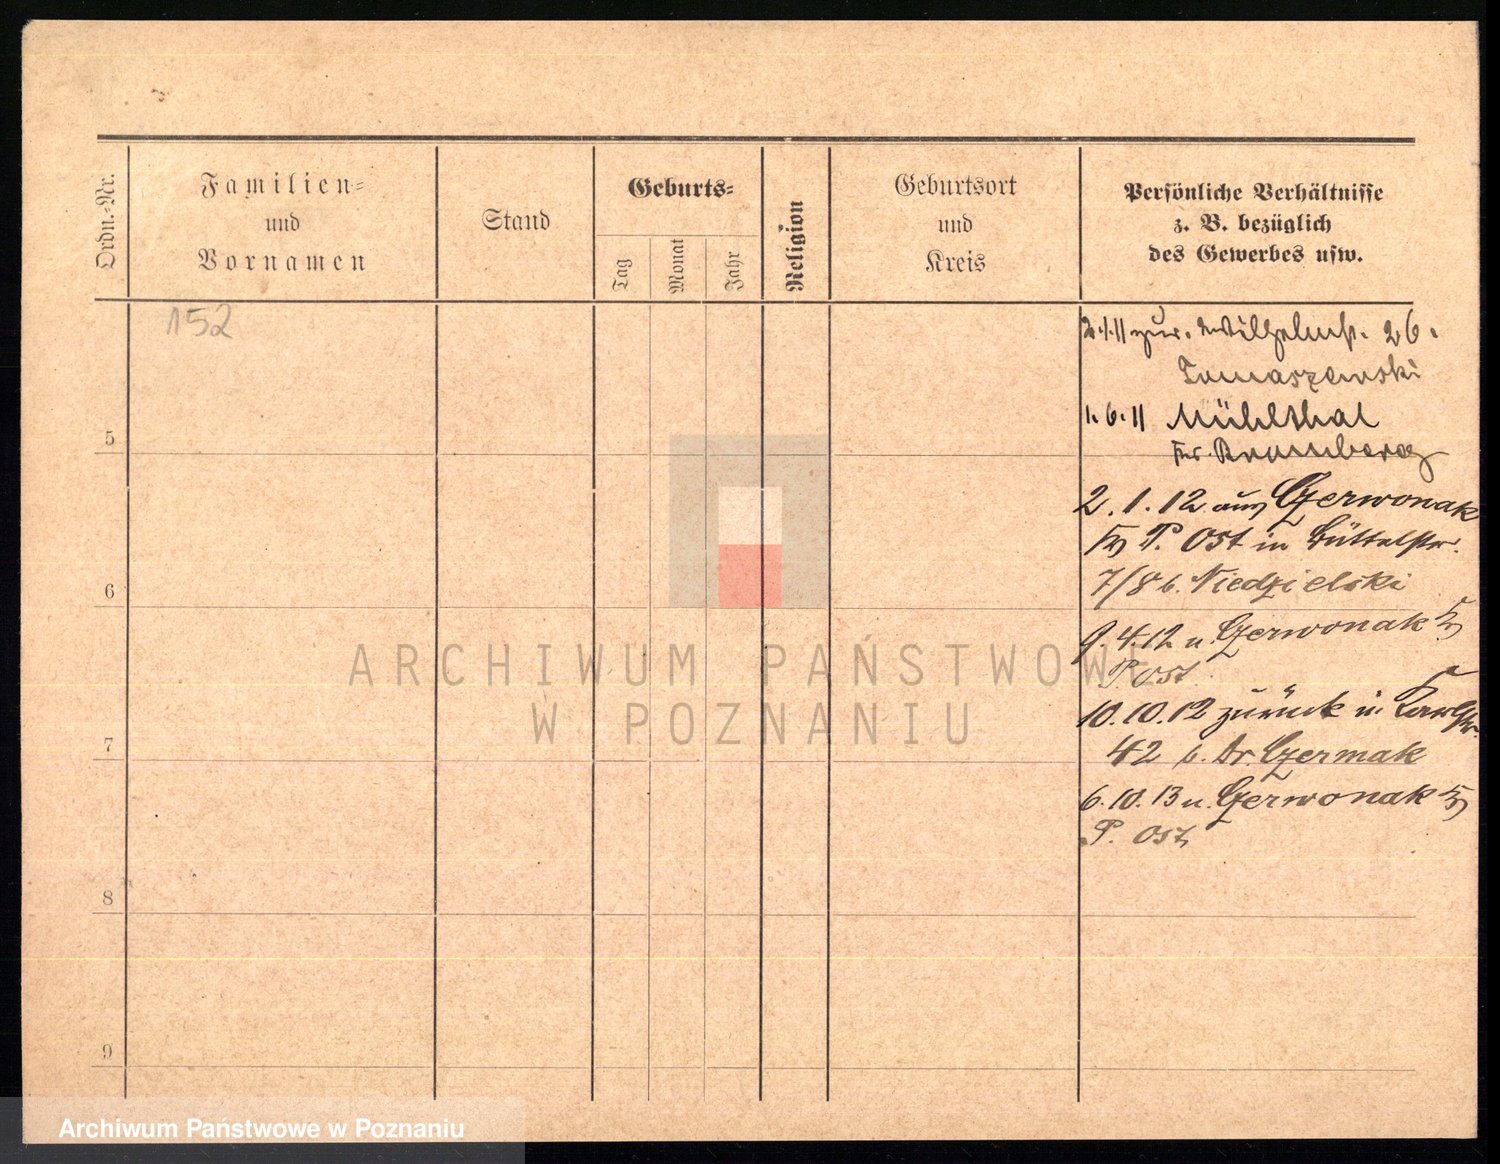 Ordn.-Nr.
Familien-
und
Vornamen
Stand
Geburts-
Tag
Monat
Jahr
Religion
Geburtsort
und
Kreis
Persönliche Verhältnisse
z. B. bezüglich
des Gewerbes usw.
152
2.1.11 zur. Wilhelmst. 26.
Tomaszewski
1.6.11 Mühlthal
Kr. Bromberg
2.1.12 aus Czerwonak
Kr P. Ost in Büttelstr.
7/8 b. Niedzielski
9.4.12 n. Czerwonak Kr
P. Ost.
10.10.12 zurück n. Karlstr.
42 b. Dr. Czermak
6.10.13 n. Czerwonak Kr
P. Ost
5
6
7
8
9
ARCHIWUM PAŃSTWOWE
W POZNANIU
Archiwum Państwowe w Poznaniu